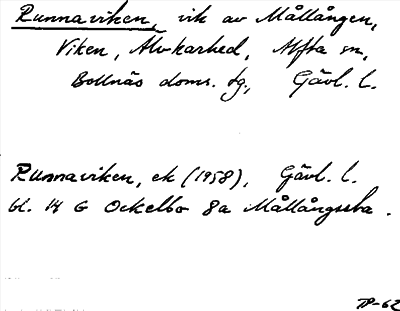 Runnaviken, vik av Mållången,
Viken, Älvkarhed, Alfta sn,
Bollnäs doms. tg, Gävl. l.
Runnaviken, ek (1958), Gävl. l.
bl. 14 G Ockelbo 8a Mållångssta.
TP-62